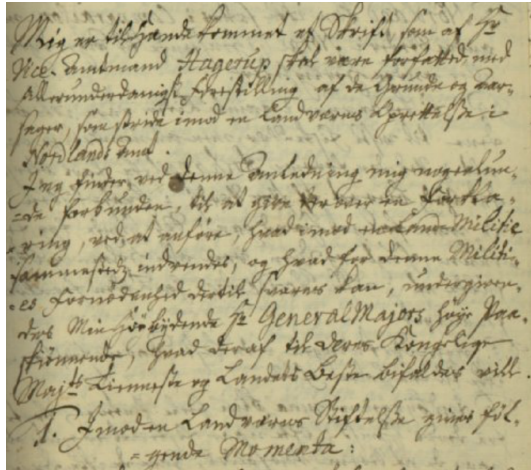 Mig er til Hande kommet et Skrift, som af Hr
Vice-Amtmand Hagerup skal være forfatted med
Allerunderdanigst Forestilling af de Grunde og Aar-
sager, som strider imod en Landværns Oprettelse i
Nordlands Amt.
Jeg finder ved denne Anledning mig nogenlun-
de forbunden, til at give herover en Forkla-
ring, ved at anføre, hvad imod Land Militie
sammesteds indvendes, og hvad for denne Militi-
es Fornødenhed dertil svares kan, undergiven-
des Min Høybydende Hr General Majors høye Paa-
skiønnende, hvad deraf til Deres Kongelige
Majts Tienneste og Landets Beste bifaldes vill.
1. Imod en Landværns Stiftelse giøres føl-
gende Momenta: